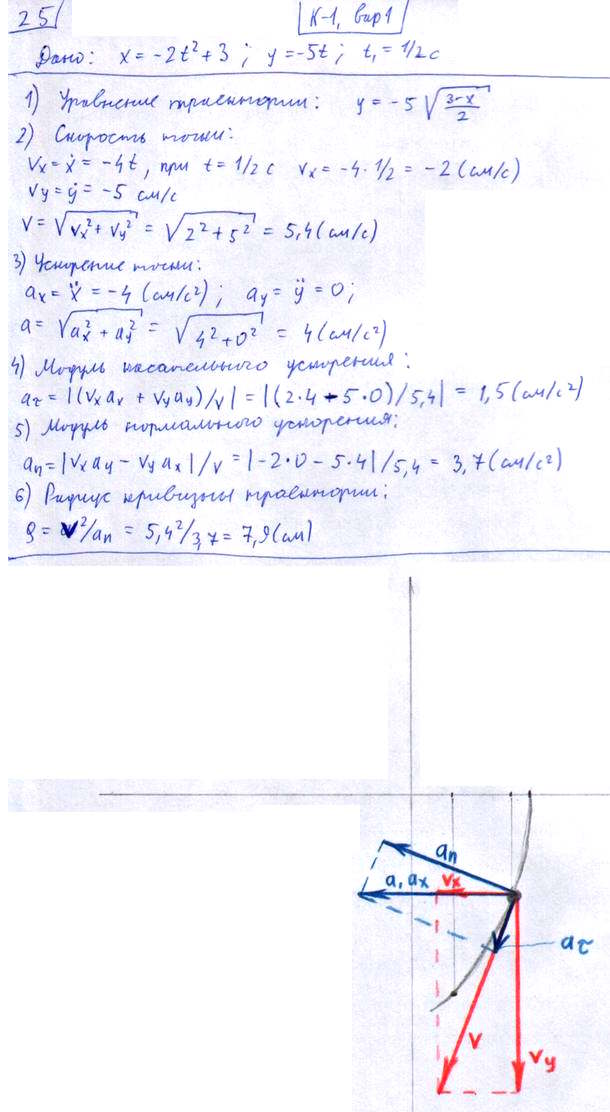 25
К-1, вар1
Дано: x = -2t²+3 ; y = -5t ; t₁ = 1/2 с
1) Уравнение траектории: y = -5 √((3-x)/2)
2) Скорость точки:
Vx = ẋ = -4t, при t = 1/2 с Vx = -4 · 1/2 = -2 (см/с)
Vy = ẏ = -5 см/с
V = √(Vx² + Vy²) = √(2² + 5²) = 5,4 (см/с)
3) Ускорение точки:
ax = ẍ = -4 (см/с²) ; ay = ÿ = 0 ;
a = √(ax² + ay²) = √(4² + 0²) = 4 (см/с²)
4) Модуль касательного ускорения:
aτ = |(Vx ax + Vy ay)/V| = |(2·4 + 5·0)/5,4| = 1,5 (см/с²)
5) Модуль нормального ускорения:
an = |Vx ay - Vy ax| / V = |-2·0 - 5·4| / 5,4 = 3,7 (см/с²)
6) Радиус кривизны траектории:
ρ = V²/an = 5,4²/3,7 = 7,9 (см)
an
a, ax
Vx
aτ
V
Vy